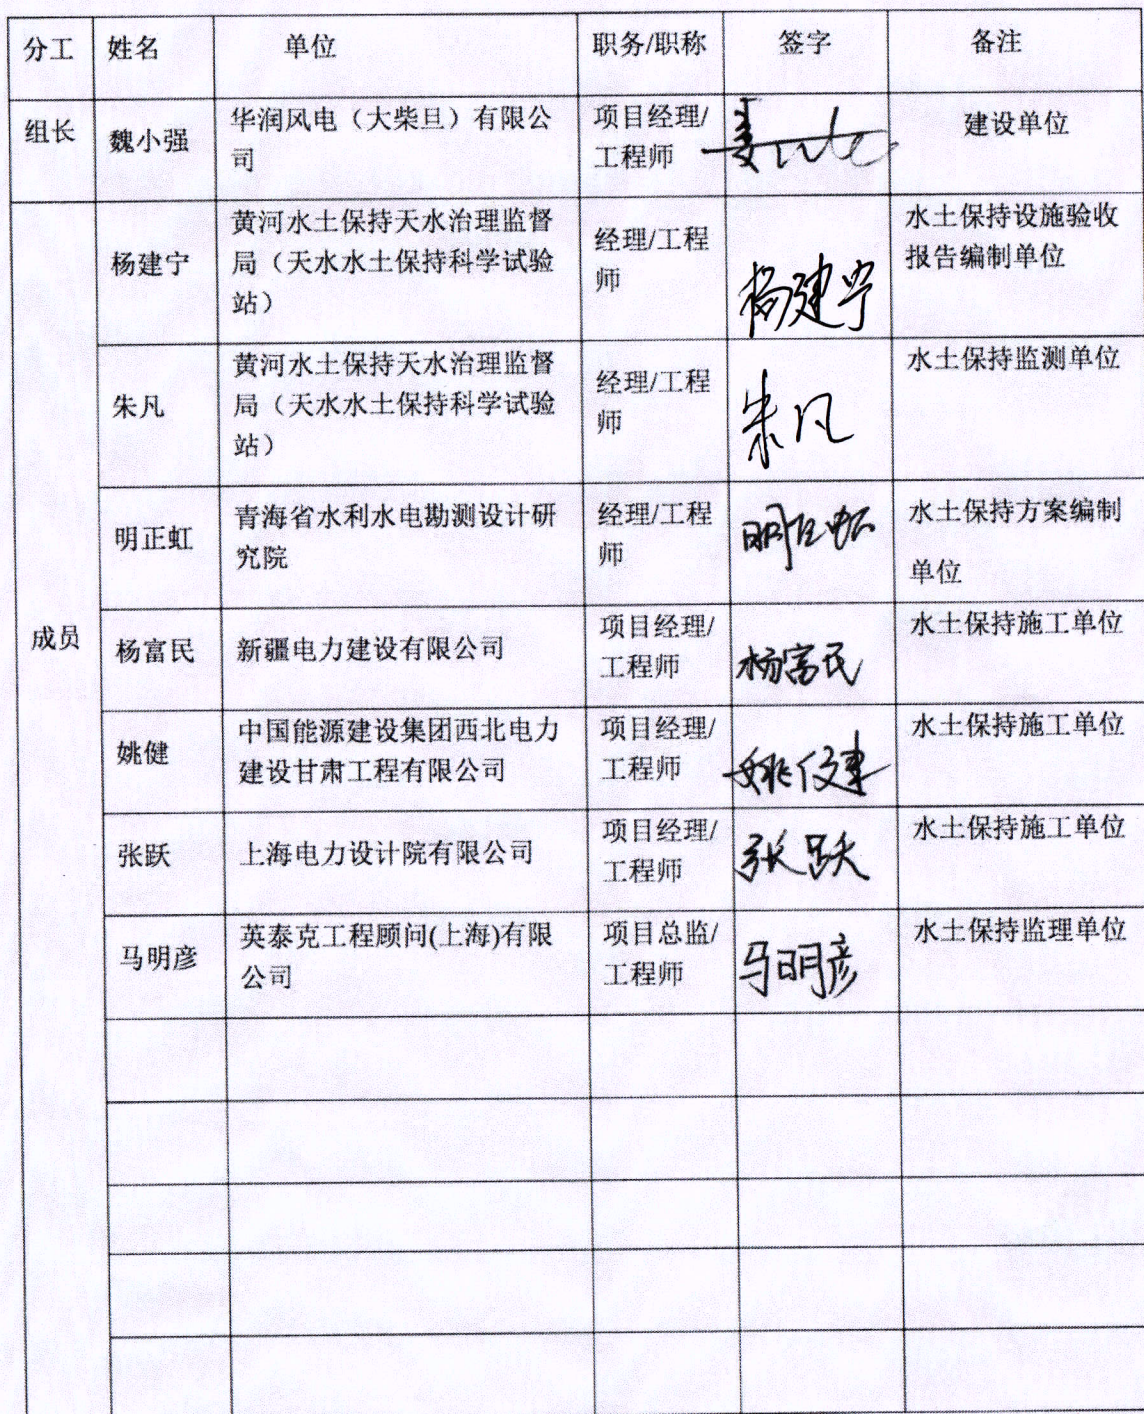 分工 姓名 单位 职务/职称 签字 备注
组长 魏小强 华润风电（大柴旦）有限公
司 项目经理/
工程师 建设单位
成员
杨建宁 黄河水土保持天水治理监督
局（天水水土保持科学试验
站） 经理/工程
师 杨建宁 水土保持设施验收
报告编制单位
朱凡 黄河水土保持天水治理监督
局（天水水土保持科学试验
站） 经理/工程
师 朱凡 水土保持监测单位
明正虹 青海省水利水电勘测设计研
究院 经理/工程
师 明正虹 水土保持方案编制
单位
杨富民 新疆电力建设有限公司 项目经理/
工程师 杨富民 水土保持施工单位
姚健 中国能源建设集团西北电力
建设甘肃工程有限公司 项目经理/
工程师 水土保持施工单位
张跃 上海电力设计院有限公司 项目经理/
工程师 张跃 水土保持施工单位
马明彦 英泰克工程顾问(上海)有限
公司 项目总监/
工程师 马明彦 水土保持监理单位